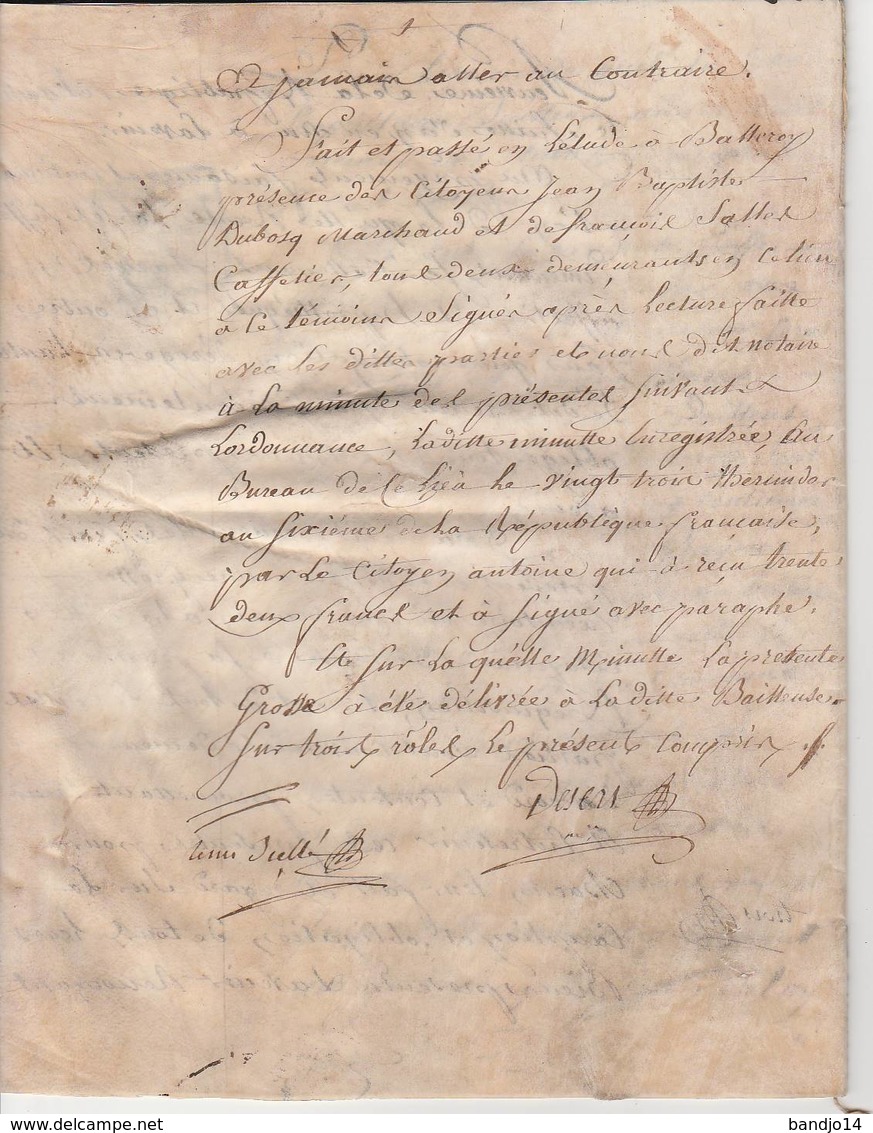 jamais aller au Contraire.
Fait et passé en L'étude à Balleroy
présence des Citoyens Jean Baptiste
Dubosq Marchand et de françois Salles
Caffetier, tous deux demeurants en ce lieu
a ce témoins Signés après Lecture faitte
avec les dittes parties et nous dit notaire
à La minute des présentes suivant
Lordonnance, Laditte minutte Enregistrée, au
Bureau de Ce Lieu Le vingt trois
an Sixiéme de La République française,
par Le Citoyen antoine qui à reçu trente
deux francs et à signé avec paraphe.
Et Sur La quélle Minutte La presente
Grosse à été délivrée à La ditte Bailleuse
Sur trois rôles Le présent Compris
Desert
bandjo14